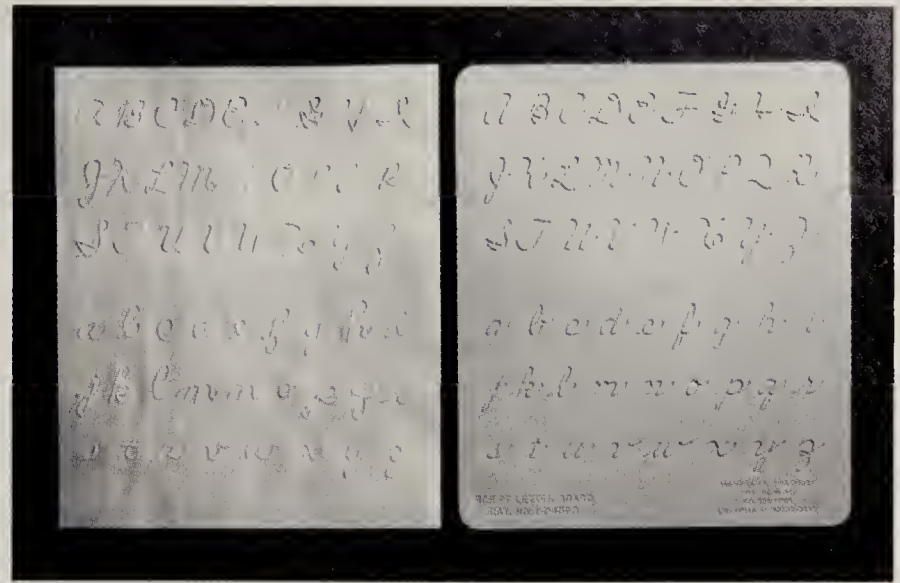 A B C D E G H I
J K L M O R
S T U V W X Y Z
a b c d e f g h i
j k l m n o p q r
s t u v w x y z
A B C D E F G H I
J K L M N O P Q R
S T U V W X Y Z
a b c d e f g h i
j k l m n o p q r
s t u v w x y z